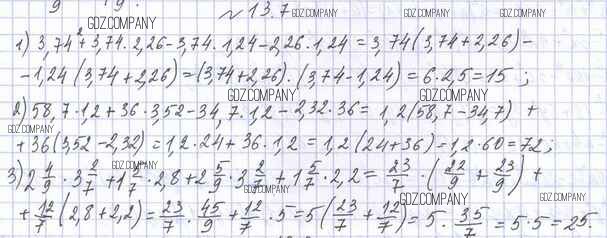 № 13.7
1) 3,74² + 3,74 · 2,26 - 3,74 · 1,24 - 2,26 · 1,24 = 3,74(3,74 + 2,26) -
- 1,24 (3,74 + 2,26) = (3,74 + 2,26) · (3,74 - 1,24) = 6 · 2,5 = 15 ;
2) 58,7 · 1,2 + 36 · 3,52 - 34,7 · 1,2 - 2,32 · 36 = 1,2(58,7 - 34,7) +
+ 36(3,52 - 2,32) = 1,2 · 24 + 36 · 1,2 = 1,2(24 + 36) = 1,2 · 60 = 72;
3) 2 4/9 · 3 2/7 + 1 5/7 · 2,8 + 2 5/9 · 3 2/7 + 1 5/7 · 2,2 = 23/7 · (22/9 + 23/9) +
+ 12/7 (2,8 + 2,2) = 23/7 · 45/9 + 12/7 · 5 = 5(23/7 + 12/7) = 5 · 35/7 = 5 · 5 = 25.
GDZ.COMPANY
GDZ.COMPANY
GDZ.COMPANY
GDZ.COMPANY
GDZ.COMPANY
GDZ.COMPANY
GDZ.COMPANY
GDZ.COMPANY
GDZ.COMPANY
GDZ.COMPANY
GDZ.COMPANY